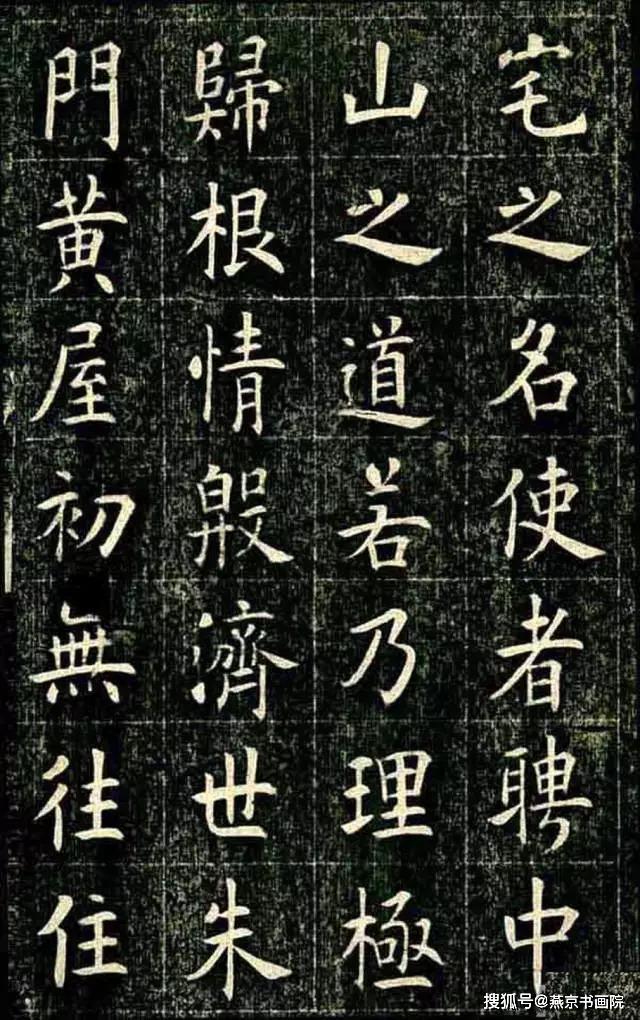 宅之名使者聘中
山之道若乃理極
歸根情殷濟世朱
門黄屋初無徃住
搜狐号@燕京书画院